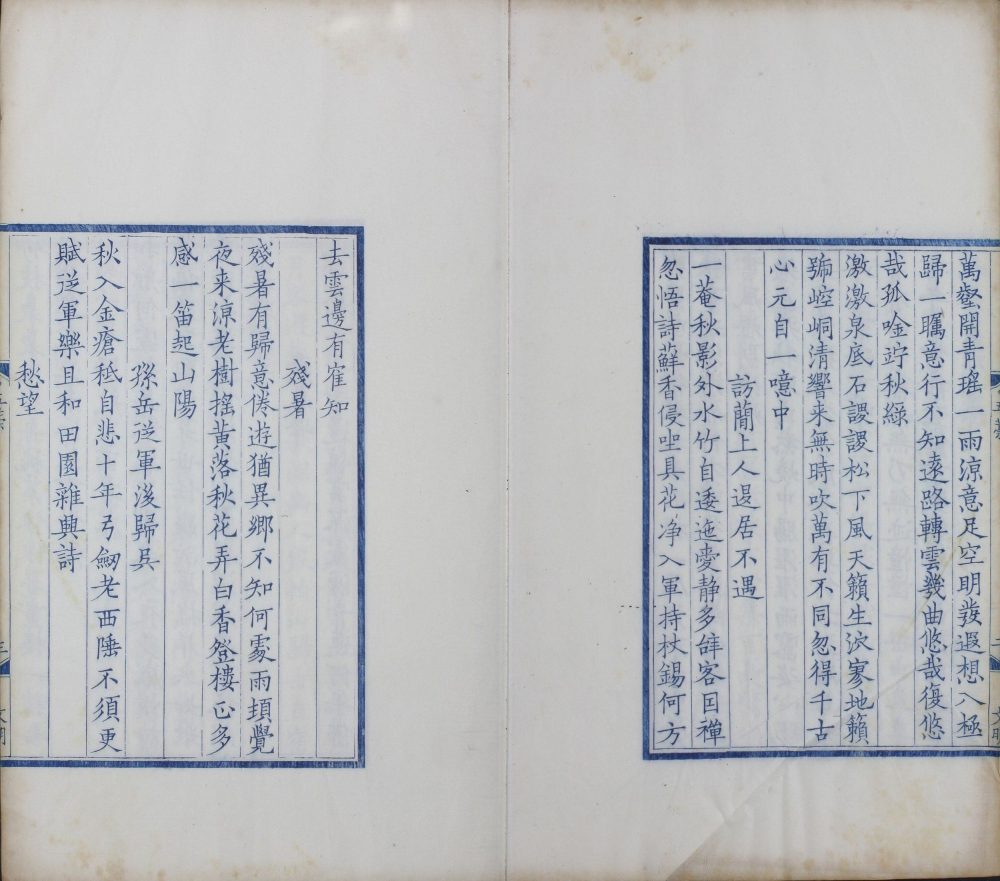 萬壑開青瑤一雨涼意足空明發遐想八極
歸一矚意行不知遠路轉雲幾曲悠哉復悠
哉孤唫竚秋綠
激激泉底石謖謖松下風天籟生泬寥地籟
號崆峒清響来無時吹萬有不同忽得千古
心元自一噫中
訪蕑上人退居不遇
一菴秋影外水竹自逶迤愛静多辞客因禪
忽悟詩蘚香侵坐具花净入軍持杖錫何方
去雲邊有隺知
殘暑
殘暑有歸意倦遊猶異鄉不知何處雨頓覺
夜来涼老樹搖黃落秋花弄白香登樓正多
感一笛起山陽
孫岳從軍後歸吳
秋入金瘡秪自悲十年弓劒老西陲不須更
賦從軍樂且和田園雜興詩
愁望